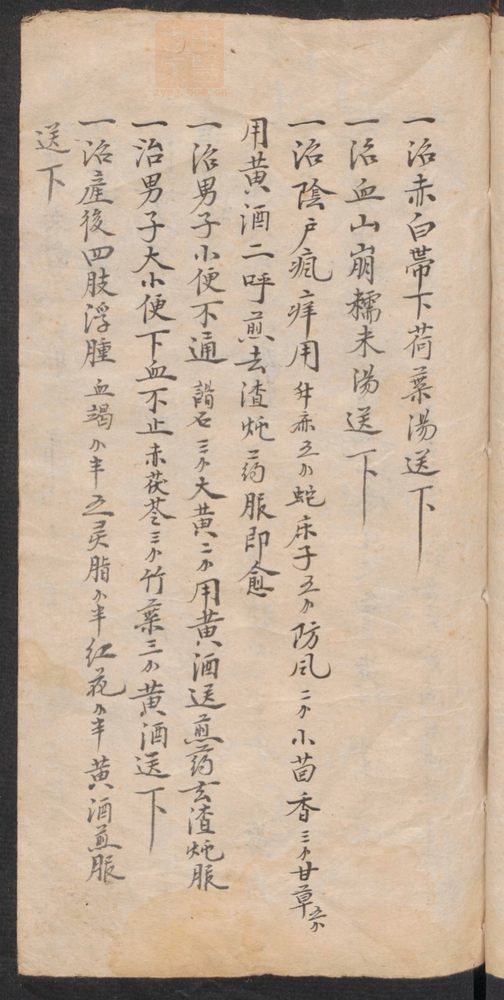 一治赤白帶下荷葉湯送下
一治血山崩糯米湯送下
一治陰户瘋痒用 升麻五分 蛇床子五分 防風二分 小茴香三分 甘草五分
用黄酒二呼煎去渣炖药服即愈
一治男子小便不通 䤈石三分 大黄二分 用黄酒送煎药去渣炖服
一治男子大小便下血不止 赤茯苓三分 竹葉三分 黄酒送下
一治産後四肢浮腫 血竭分半 五灵脂分半 红花分半 黄酒煎服
送下